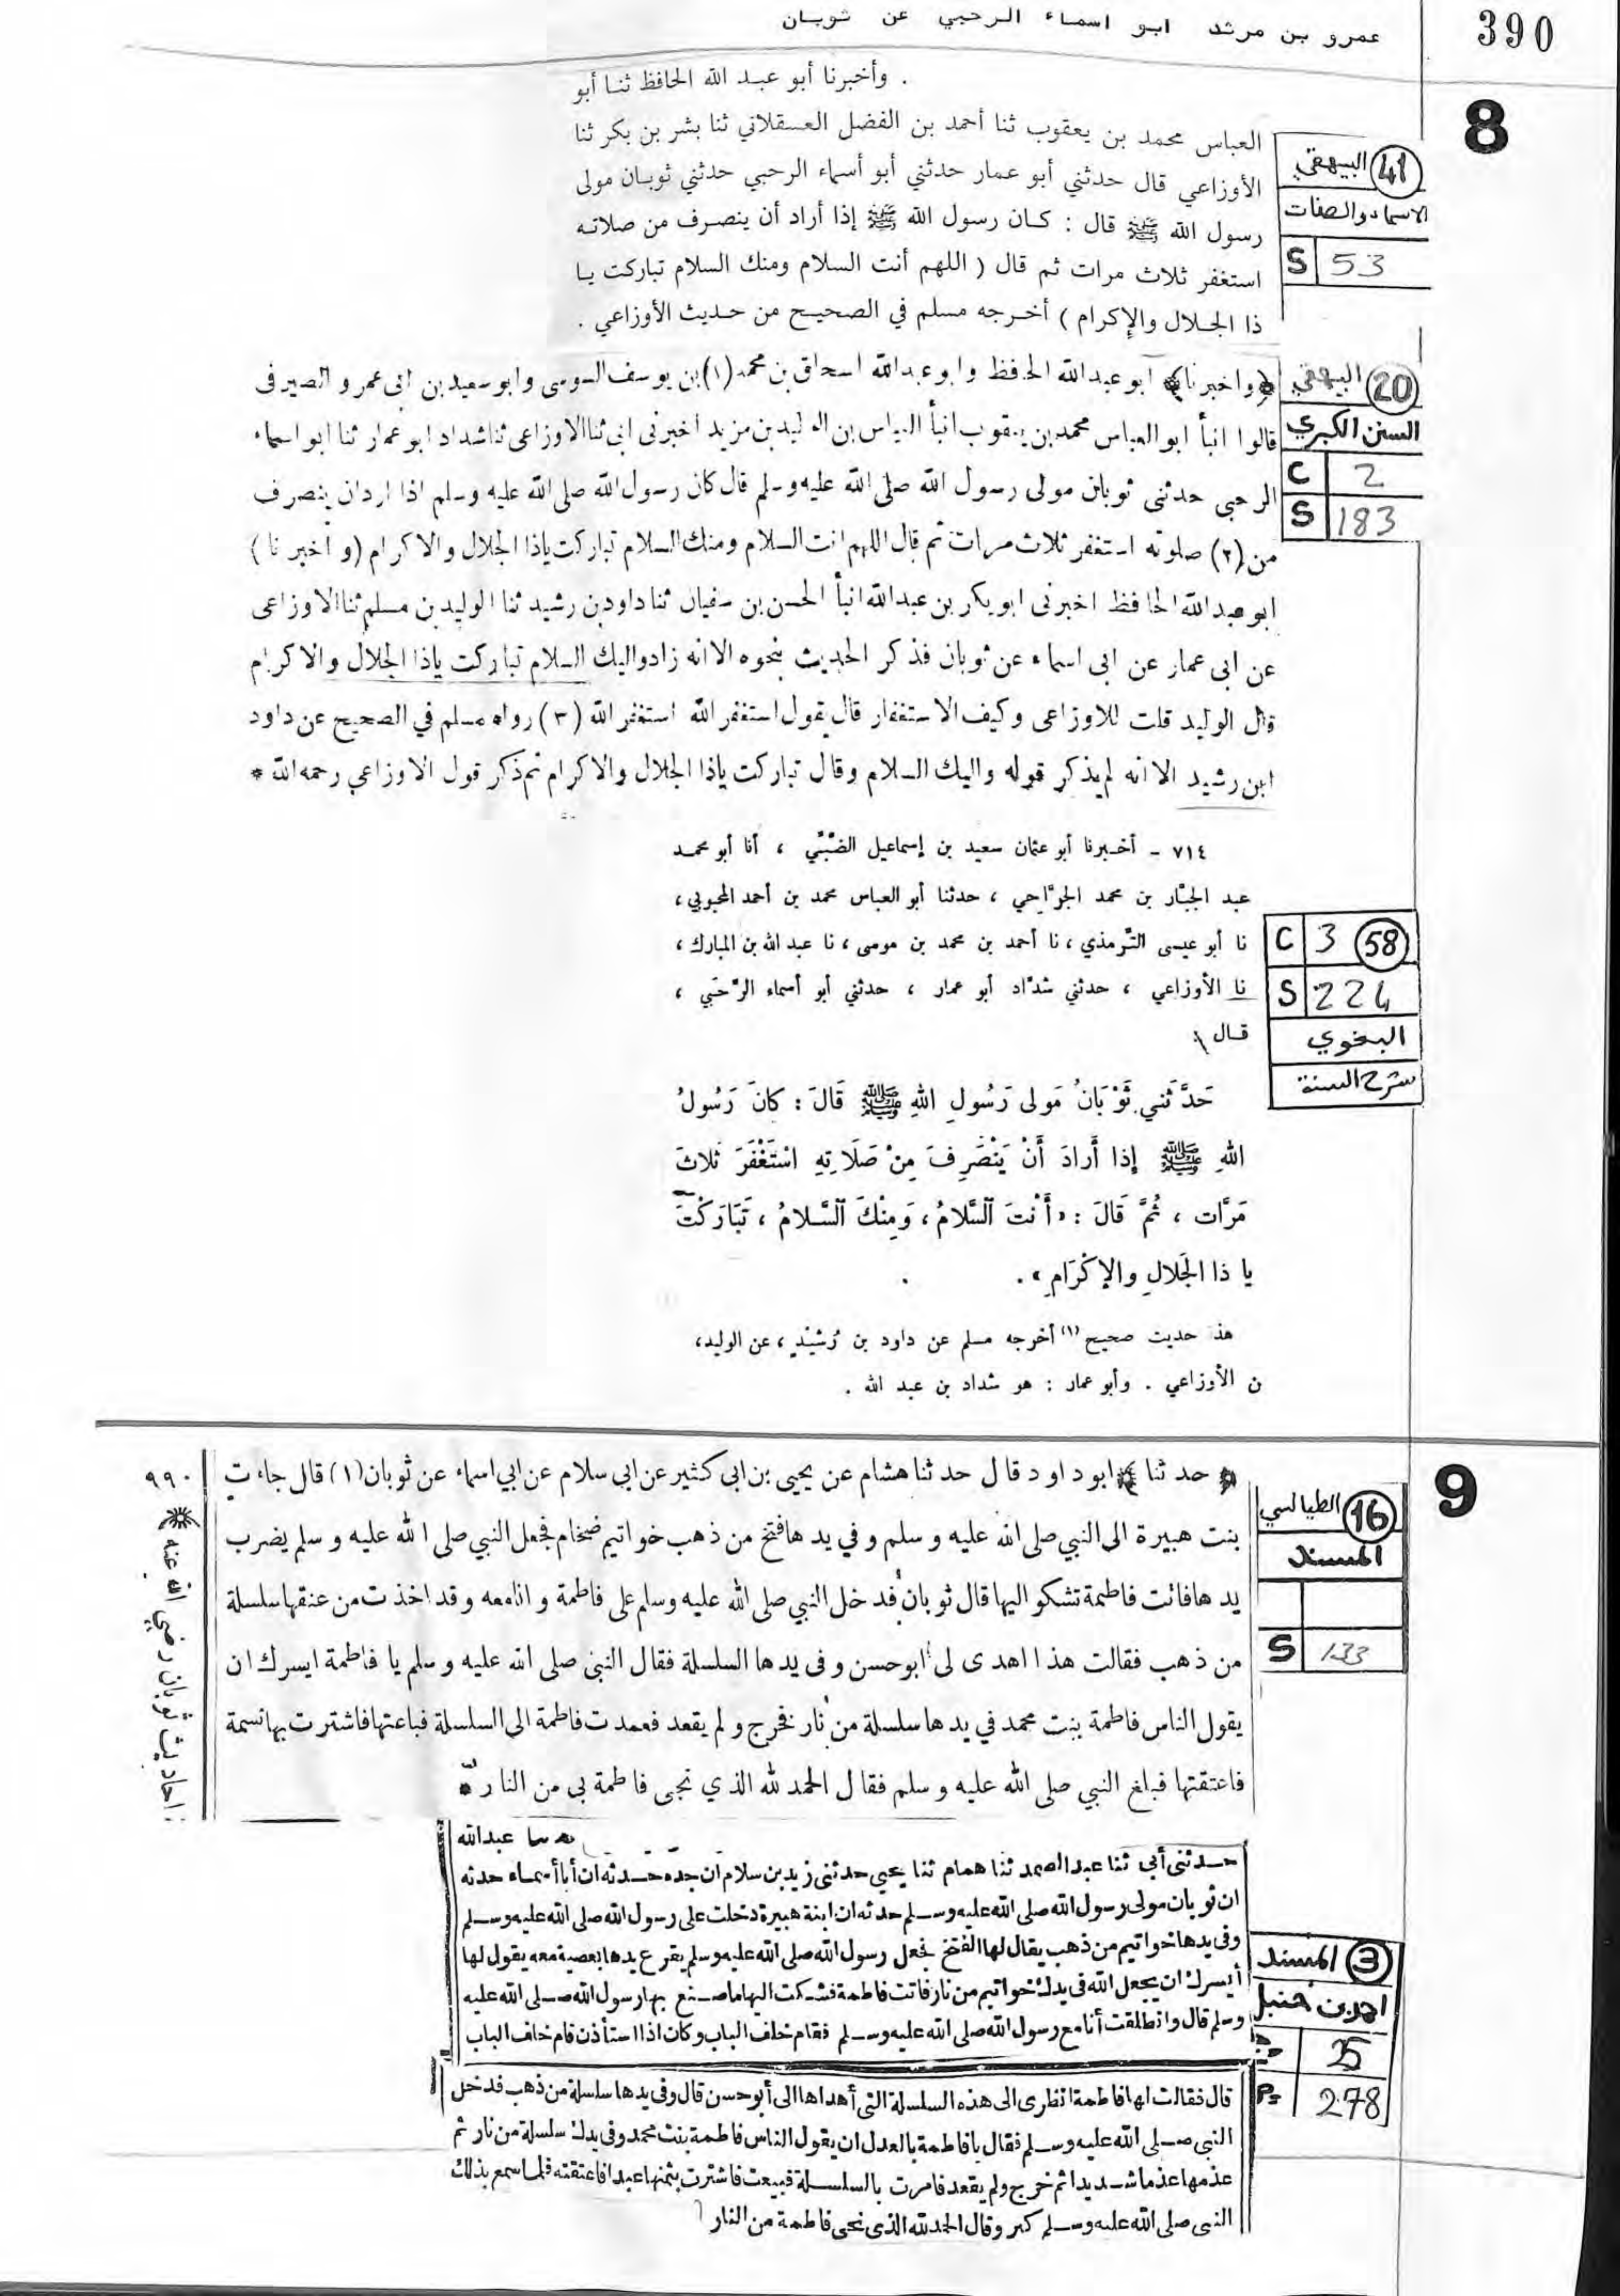 390
عمرو بن مرثد ابو اسماء الرحبي عن ثوبان
8
. وأخبرنا أبو عبد الله الحافظ ثنا أبو
العباس محمد بن يعقوب ثنا أحمد بن الفضل العسقلاني ثنا بشر بن بكر ثنا
الأوزاعي قال حدثني أبو عمار حدثني أبو أسماء الرحبي حدثني ثوبان مولى
رسول الله ﷺ قال : كان رسول الله ﷺ إذا أراد أن ينصرف من صلاته
استغفر ثلاث مرات ثم قال ( اللهم أنت السلام ومنك السلام تباركت يا
ذا الجلال والإكرام ) أخرجه مسلم في الصحيح من حديث الأوزاعي .
41 البيهقي
الاسماء والصفات
S 53
﴿واخبرنا﴾ ابو عبد الله الحافظ وابو عبد الله اسحاق بن محمد (١) بن يوسف السوسى وابو سعيد بن ابى عمرو الصيرفى
قالوا انبأ ابو العباس محمد بن يعقوب انبأ العباس بن الوليد بن مزيد اخبرنى ابى ثنا الاوزاعى ثنا شداد ابو عمار ثنا ابو اسماء
الرحبى حدثنى ثوبان مولى رسول الله صلى الله عليه وسلم قال كان رسول الله صلى الله عليه وسلم اذا اراد ان ينصرف
من (٢) صلوته استغفر ثلاث مرات ثم قال اللهم انت السلام ومنك السلام تباركت ياذا الجلال والاكرام (و اخبر نا)
ابو عبد الله الحافظ اخبرنى ابو بكر بن عبد الله انبأ الحسن بن سفيان ثنا داود بن رشيد ثنا الوليد بن مسلم ثنا الاوزاعى
عن ابى عمار عن ابى اسماء عن ثوبان فذكر الحديث بنحوه الا انه زاد واليك السلام تباركت ياذا الجلال والاكرام
قال الوليد قلت للاوزاعى وكيف الاستغفار قال يقول استغفر الله استغفر الله (٣) رواه مسلم في الصحيح عن داود
ابن رشيد الا انه لم يذكر قوله واليك السلام وقال تباركت ياذا الجلال والاكرام ثم ذكر قول الاوزاعى رحمه الله *
20 البيهقي
السنن الكبري
C 2
S 183
٧١٤ – أخبرنا أبو عثمان سعيد بن إسماعيل الضبّي ، أنا أبو محمد
عبد الجبّار بن محمد الجرّاحي ، حدثنا أبو العباس محمد بن أحمد المحبوبي،
نا أبو عيسى التّرمذي ، نا أحمد بن محمد بن موسى ، نا عبد الله بن المبارك ،
نا الأوزاعي ، حدثني شدّاد أبو عمار ، حدثني أبو أسماء الرّحبي ،
قال :
حَدَّثَني ثَوْبَانُ مَولى رَسُولِ اللهِ ﷺ قَالَ : كانَ رَسُولُ
اللهِ ﷺ إذا أَرادَ أَنْ يَنْصَرِفَ مِنْ صَلَاتِهِ اسْتَغْفَرَ ثَلاثَ
مَرَّات ، ثُمَّ قَالَ : « أَنْتَ السَّلامُ ، وَمِنْكَ السَّلامُ ، تَبَارَكْتَ
يا ذا الجَلالِ والإِكْرَامِ » .
هذ حديث صحيح (١) أخرجه مسلم عن داود بن رُشَيْدٍ ، عن الوليد،
ن الأوزاعي . وأبو عمار : هو شداد بن عبد الله .
C 3 58
S 224
البغوي
شرح السنة
9
﴿حدثنا﴾ ابو داود قال حدثنا هشام عن يحيى بن ابى كثير عن ابى سلام عن ابي اسماء عن ثوبان (١) قال جاءت
بنت هبيرة الى النبي صلى الله عليه وسلم وفي يدها فتخ من ذهب خواتيم ضخام فجعل النبي صلى الله عليه وسلم يضرب
يدها فاتت فاطمة تشكو اليها قال ثوبان فدخل النبي صلى الله عليه وسلم على فاطمة وانا معه وقد اخذت من عنقها سلسلة
من ذهب فقالت هذا اهدى لى ابو حسن وفى يدها السلسلة فقال النبى صلى الله عليه وسلم يا فاطمة ايسرك ان
يقول الناس فاطمة بنت محمد في يدها سلسلة من نار فخرج ولم يقعد فعمدت فاطمة الى السلسلة فباعتها فاشترت بها نسمة
فاعتقتها فبلغ النبي صلى الله عليه وسلم فقال الحمد لله الذي نجى فاطمة بى من النار *
٩٩٠
احاديث ثوبان رضي الله عنه
16 الطيالسي
المسند
S 133
عبد الله
حدثنى أبى ثنا عبد الصمد ثنا همام ثنا يحيى حدثنى زيد بن سلام ان جده حدثه ان أبا أسماء حدثه
ان ثوبان مولى رسول الله صلى الله عليه وسلم حدثه ان ابنة هبيرة دخلت على رسول الله صلى الله عليه وسلم
وفى يدها خواتيم من ذهب يقال لها الفتخ فجعل رسول الله صلى الله عليه وسلم يقرع يدها بعصية معه يقول لها
أيسرك ان يجعل الله فى يدك خواتيم من نار فاتت فاطمة فشكت اليها ما صنع بها رسول الله صلى الله عليه
وسلم قال وانطلقت أنا مع رسول الله صلى الله عليه وسلم فقام خلف الباب وكان اذا استأذن قام خلف الباب
قال فقالت لها فاطمة انظرى الى هذه السلسلة التى أهداها الى أبو حسن قال وفى يدها سلسلة من ذهب فدخل
النبى صلى الله عليه وسلم فقال يا فاطمة بالعدل ان يقول الناس فاطمة بنت محمد وفى يدك سلسلة من نار ثم
عذمها عذما شديدا ثم خرج ولم يقعد فامرت بالسلسلة فبيعت فاشترت بثمنها عبدا فاعتقته فلما سمع بذلك
النبى صلى الله عليه وسلم كبر وقال الحمد لله الذى نجى فاطمة من النار
3 المسند
احمد بن حنبل
25
278